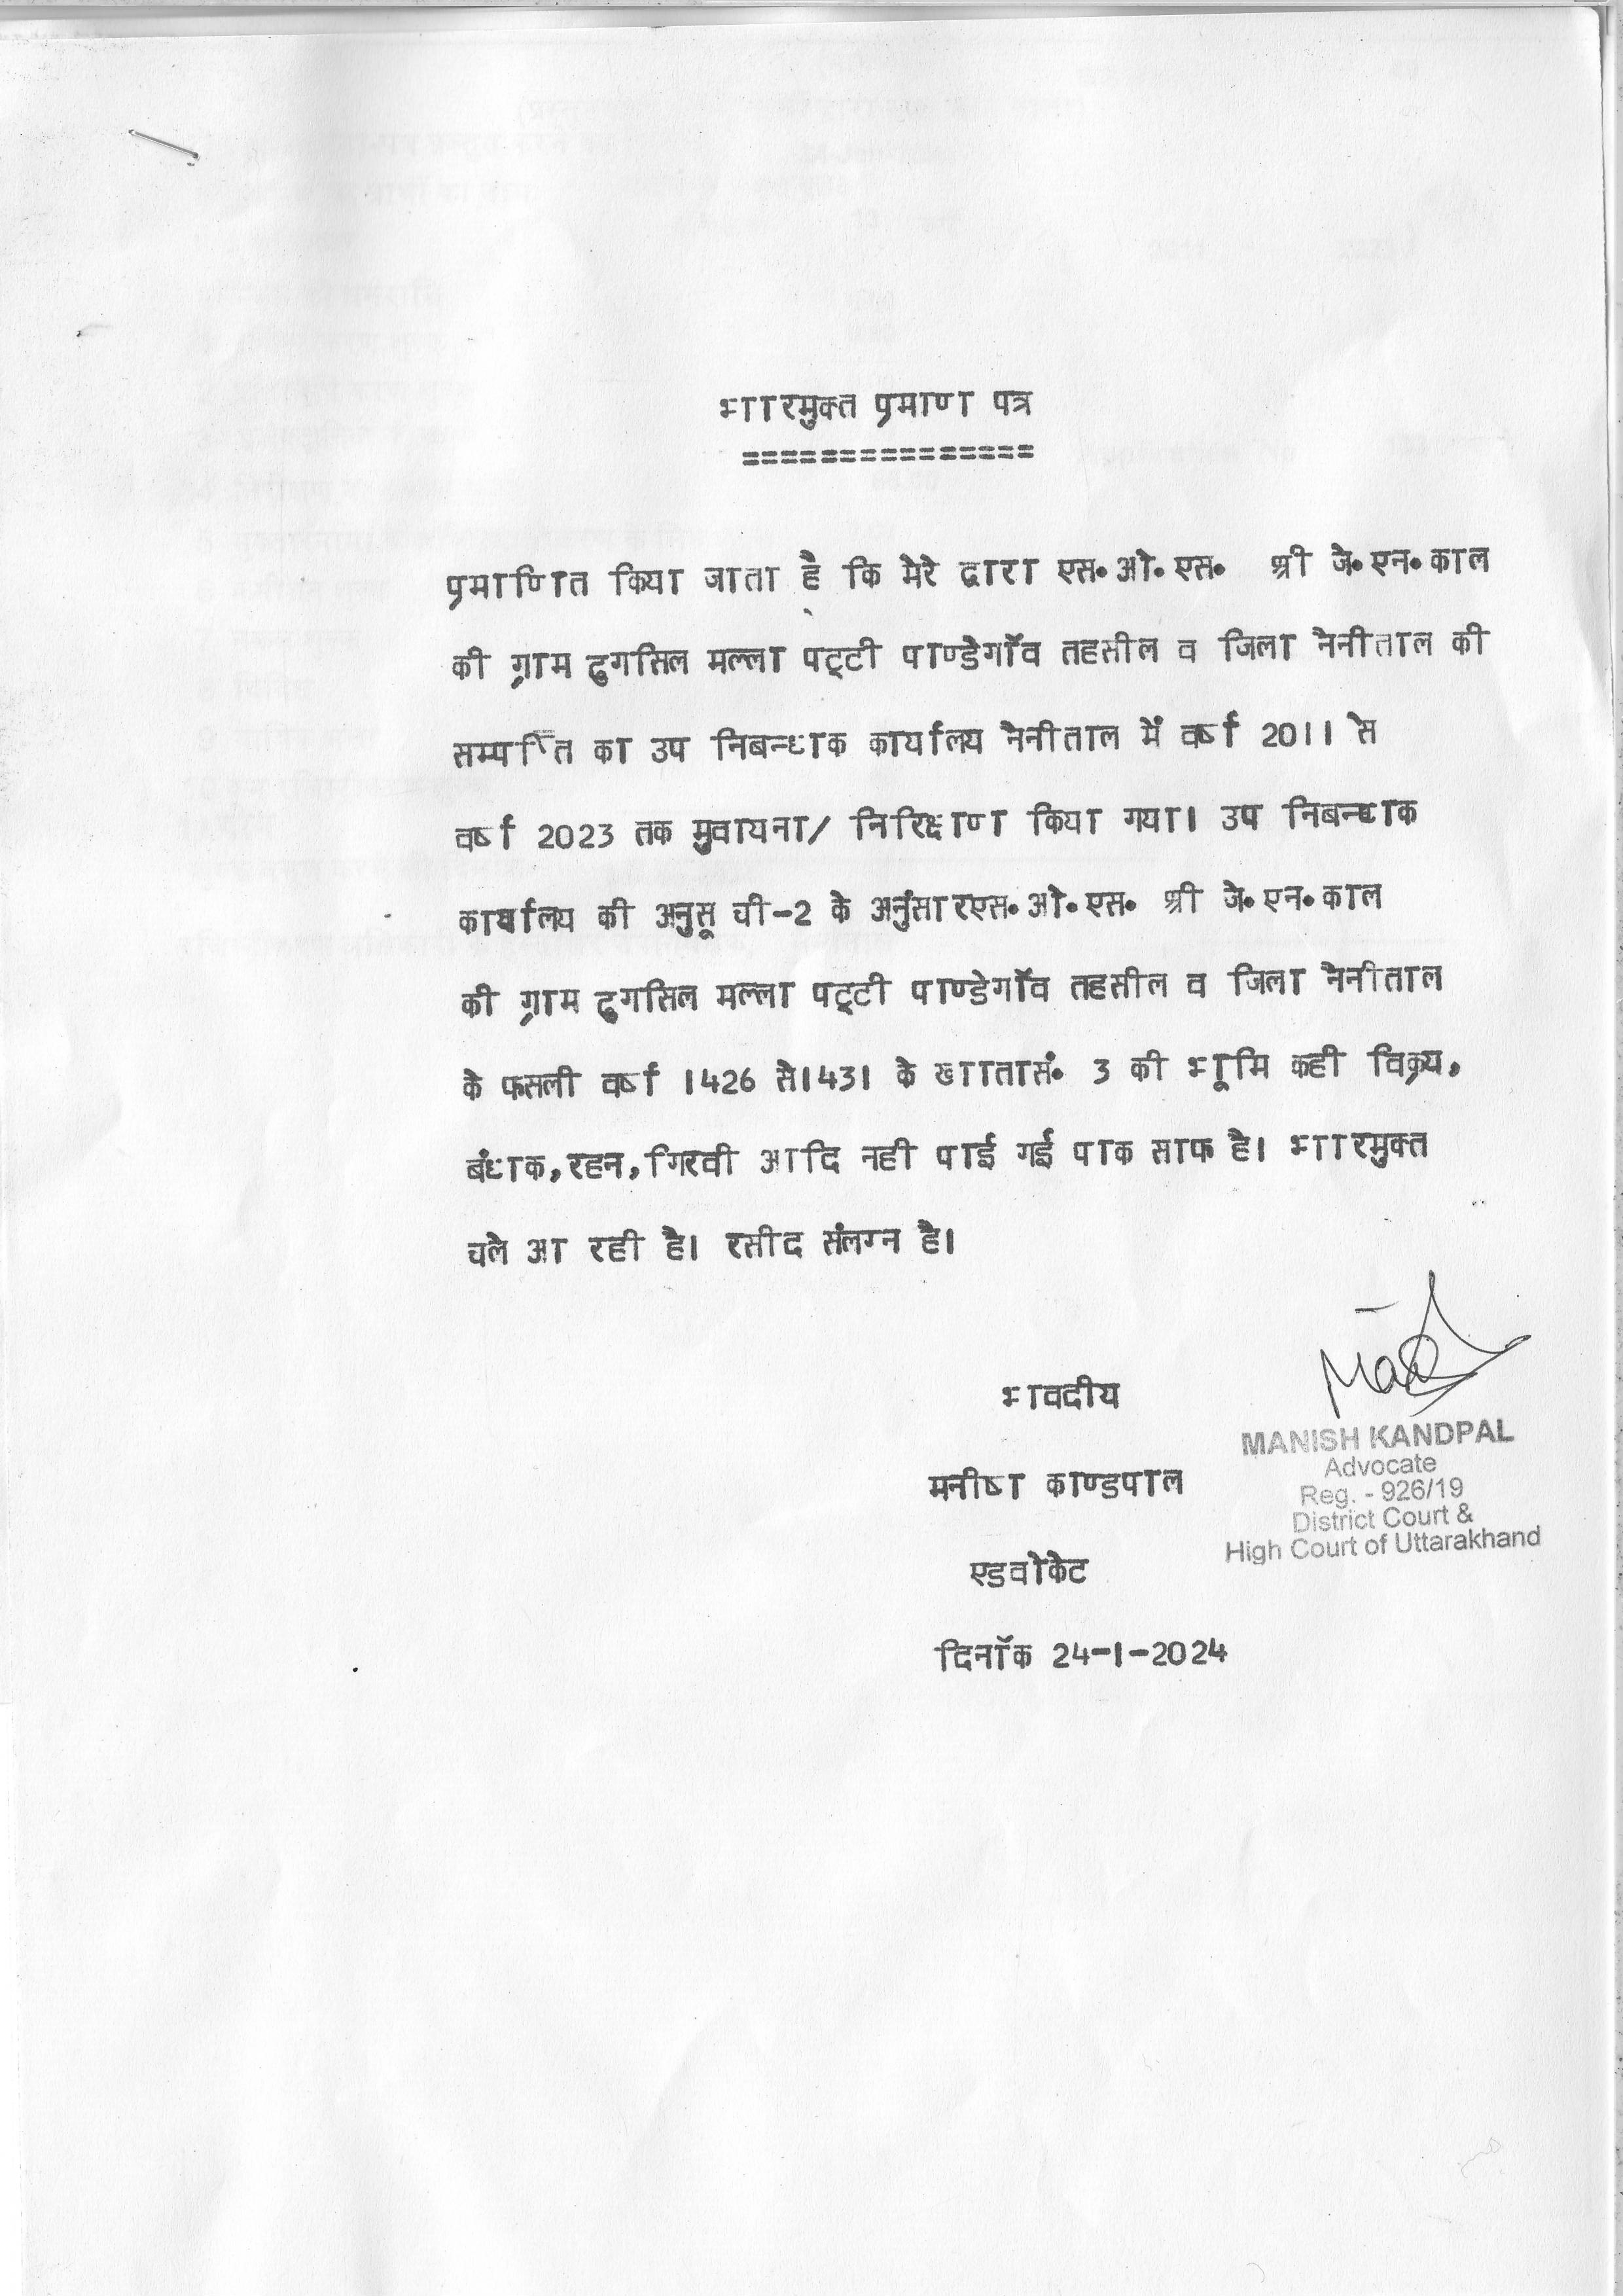 भारमुक्त प्रमाण पत्र
===============
प्रमाणित किया जाता है कि मेरे द्वारा एस.ओ.एस. श्री जे.एन.काल
की ग्राम ढुगसिल मल्ला पट्टी पाण्डेगॉव तहसील व जिला नैनीताल की
सम्पत्ति का उप निबन्धक कार्यालय नैनीताल में वर्ष 2011 से
वर्ष 2023 तक मुवायना/ निरिक्षण किया गया। उप निबन्धक
कार्यालय की अनुसूची-2 के अनुंसारएस.ओ.एस. श्री जे.एन.काल
की ग्राम ढुगसिल मल्ला पट्टी पाण्डेगॉव तहसील व जिला नैनीताल
के फसली वर्ष 1426 से1431 के खातासं. 3 की भूमि कही विक्रय,
बंधक,रहन,गिरवी आदि नही पाई गई पाक साफ है। भारमुक्त
चले आ रही है। रसीद संलग्न है।
भवदीय
मनीष काण्डपाल
एडवोकेट
दिनॉक 24-1-2024
MANISH KANDPAL
Advocate
Reg. - 926/19
District Court &
High Court of Uttarakhand